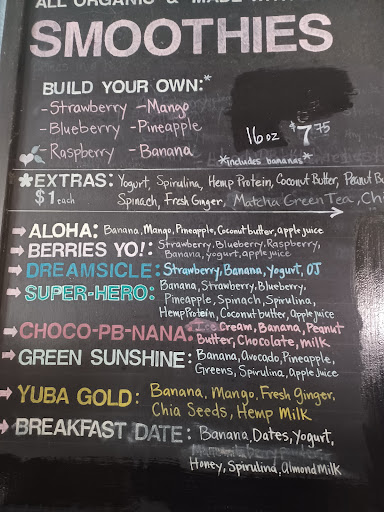 ALL ORGANIC & MADE
SMOOTHIES
BUILD YOUR OWN:*
-Strawberry -Mango
-Blueberry -Pineapple
-Raspberry -Banana
16oz $7.75
*includes bananas*
*EXTRAS: Yogurt, Spirulina, Hemp Protein, Coconut Butter, Peanut
$1 each Spinach, Fresh Ginger, Matcha Green Tea,
ALOHA: Banana, Mango, Pineapple, Coconut butter, apple juice
BERRIES YO!: Strawberry, Blueberry, Raspberry,
Banana, yogurt, apple juice
DREAMSICLE: Strawberry, Banana, Yogurt, OJ
SUPER-HERO: Banana, Strawberry, Blueberry,
Pineapple, Spinach, Spirulina,
Hemp Protein, Coconut butter, Apple juice
CHOCO-PB-NANA: Ice Cream, Banana, Peanut
Butter, Chocolate, milk
GREEN SUNSHINE: Banana, Avocado, Pineapple,
Greens, Spirulina, Apple Juice
YUBA GOLD: Banana, Mango, Fresh Ginger,
Chia Seeds, Hemp Milk
BREAKFAST DATE: Banana, Dates, Yogurt,
Honey, Spirulina, Almond Milk